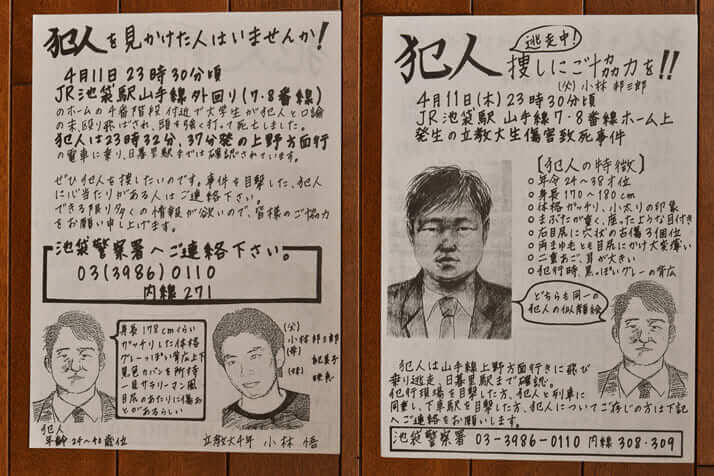 犯人を見かけた人はいませんか!
4月11日23時30分頃
JR池袋駅山手線外回り(7・8番線)
のホームの千番階段付近で大学生が犯人と口論
の末、殴り飛ばされ、頭を強く打って死亡しました。
犯人は23時32分、37分発の上野方面行
の電車に乗り、日暮里駅までは確認されています。
ぜひ犯人を捜したいのです。事件を目撃した、犯人
に心当たりがある人はご連絡下さい。
できる限り多くの情報が欲いので、皆様のご協力
をお願い申し上げます。
池袋警察署へご連絡下さい。
03(3986)0110
内線 271
身長178cmくらい
ガッチリした体格
グレーっぽい背広上下
黒色カバンを所持
一見サラリーマン風
目尻のあたりに傷あ
とがあるらしい
犯人
年齢24〜40歳位
(父)
小林邦三郎
(母)
(妹)
立教大4年 小林 悟
逃走中!
犯人捜しにご協力を!!
(父)小林邦三郎
4月11日(木)23時30分頃
JR池袋駅 山手線7・8番線ホーム上
発生の立教大生傷害致死事件
[犯人の特徴]
○年令24〜38才位
○身長170〜180cm
○体格ガッチリ、小太りの印象
○まぶたが重く、座ったような目付き
○右目尻に穴状の古傷3個位
○両まゆ毛とも目尻にかけ大変薄い
○二重あご、耳が大きい
○犯行時、黒っぽいグレーの背広
どちらも同一の
犯人の似顔絵
犯人は山手線上野方面行きに飛び
乗り逃走、日暮里駅まで確認。
犯行現場を目撃した方、犯人と列車に
同乗し、下車駅を目撃した方、犯人についてご存じの方は下記
へご連絡をお願いします。
池袋警察署 03-3986-0110 内線 308・309